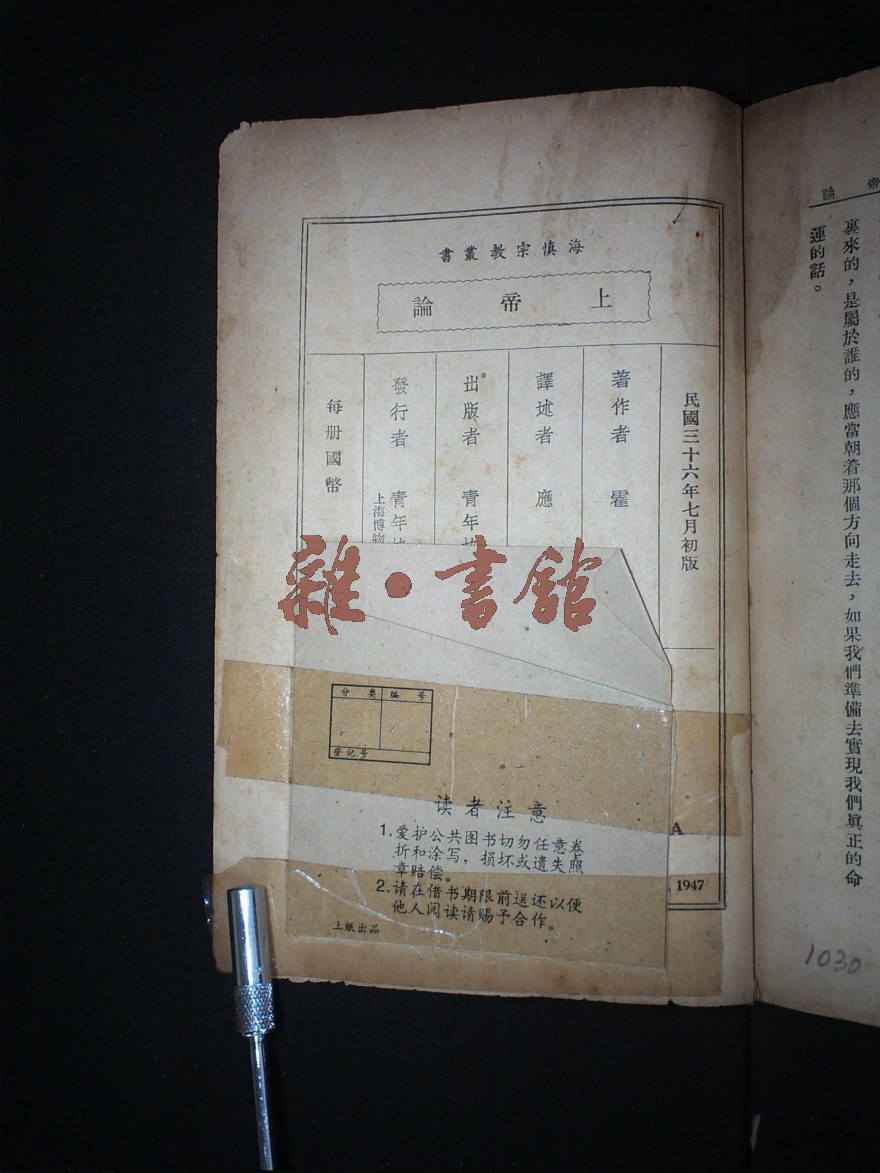 海慎宗教叢書
上帝論
民國三十六年七月初版
著作者 霍
譯述者 應
出版者 青年
發行者 青年
上海博物
每册國幣
A
1947
分类 编号
登记号
读者注意
1.爱护公共图书切勿任意卷
折和涂写，损坏或遗失照
章赔偿。
2.请在借书期限前送还以便
他人阅读请赐予合作。
上纸出品
雜·書館
帝論
裏來的，是屬於誰的，應當朝着那個方向走去，如果我們準備去實現我們眞正的命
運的話。
1030